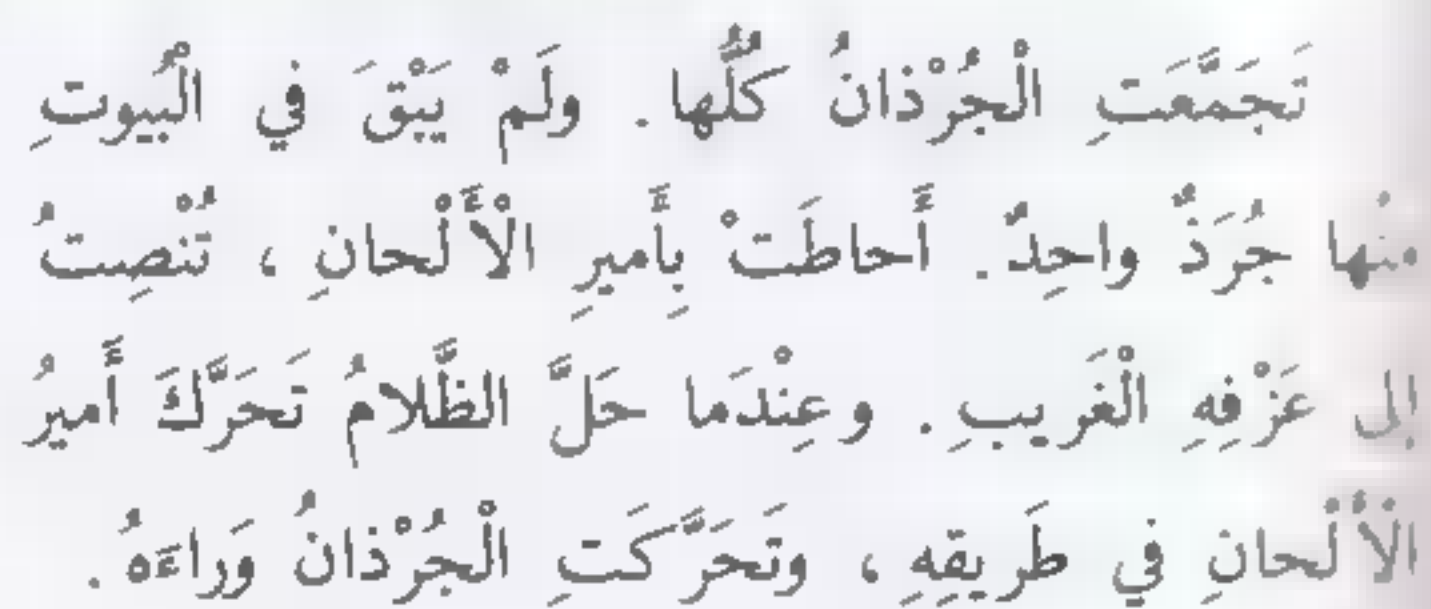 تَجَمَّعَتِ الْجُرْذانُ كُلُّها . ولَمْ يَبْقَ في الْبُيوتِ
مِنْها جُرَذٌ واحِدٌ . أَحاطَتْ بِأَميرِ الْأَلْحانِ ، تُنْصِتُ
إلى عَزْفِهِ الْغَريبِ . وعِنْدَما حَلَّ الظَّلامُ تَحَرَّكَ أَميرُ
الْأَلْحانِ في طَريقِهِ ، وتَحَرَّكَتِ الْجُرْذانُ وَراءَهُ .